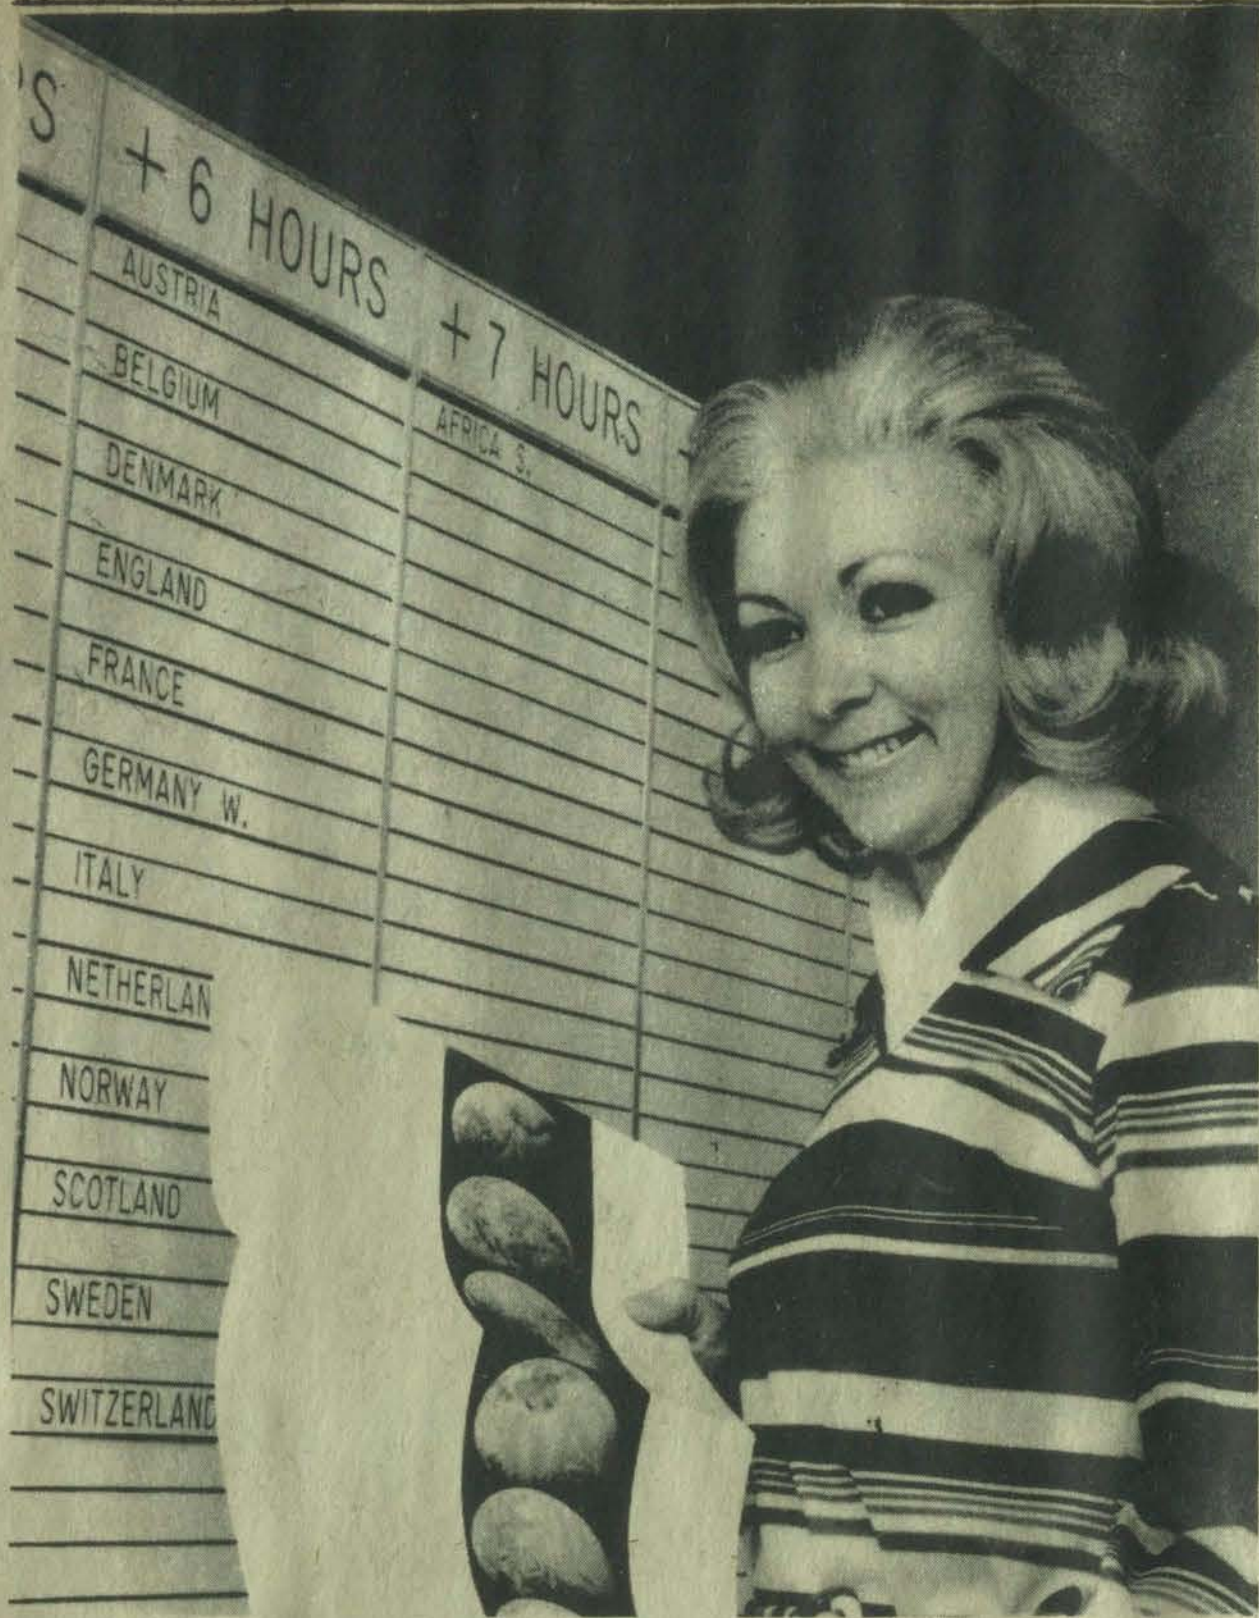 S
+ 6 HOURS
AUSTRIA
BELGIUM
DENMARK
ENGLAND
FRANCE
GERMANY W.
ITALY
NETHERLAN
NORWAY
SCOTLAND
SWEDEN
SWITZERLAND
+ 7 HOURS
AFRICA S.